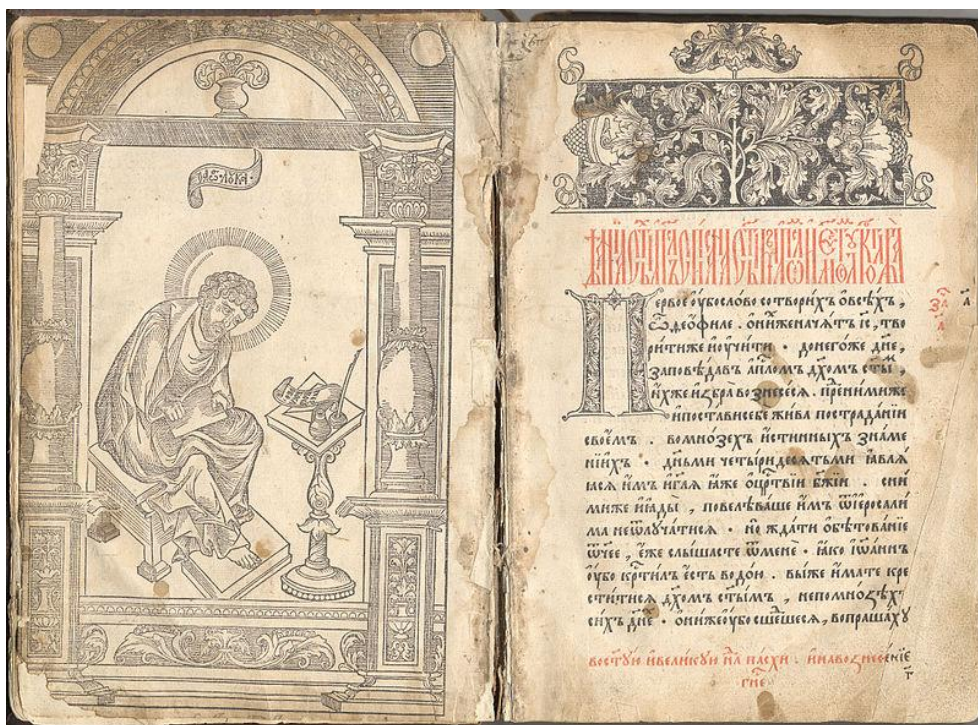 Первоеꙋбослово сотворихъ ѡвсѣхъ,
ѽдеѡфиле. ѡниженачѧтъ і҃с, тво
ритиже иꙋчити · донегоже дн҃е,
заповѣдавъ ап҃лмъ дх҃омъ ст҃ы,
ихже избра вознесесѧ. пренимиже
ипостависебе жива пострадании
своемъ. вомнозех истинныхъ знаме
нїихъ · дн҃ьми четыридесѧтьми ꙗвлѧ
ꙗсѧ имъ игл҃ѧ ꙗже ѡцр҃твїи бж҃їи. сни
миже иꙗды, повелѣваше имъ ѿїеросали
ма неѿлꙋчатисѧ · но ждати ѡбѣтованїе
ѿчее, еже слышасте ѿмене · ꙗко їѡаннъ
ꙋбо кр҃тилъ есть водою. выже имате кре
ститисѧ дх҃омъ ст҃ымъ, непомнозѣх
сихъ дн҃е · ѡнижеꙋбо сшешесѧ, вопрашахꙋ
востꙋю ивеликꙋю нл҃ пасхи. инавознесенїе
гн҃е